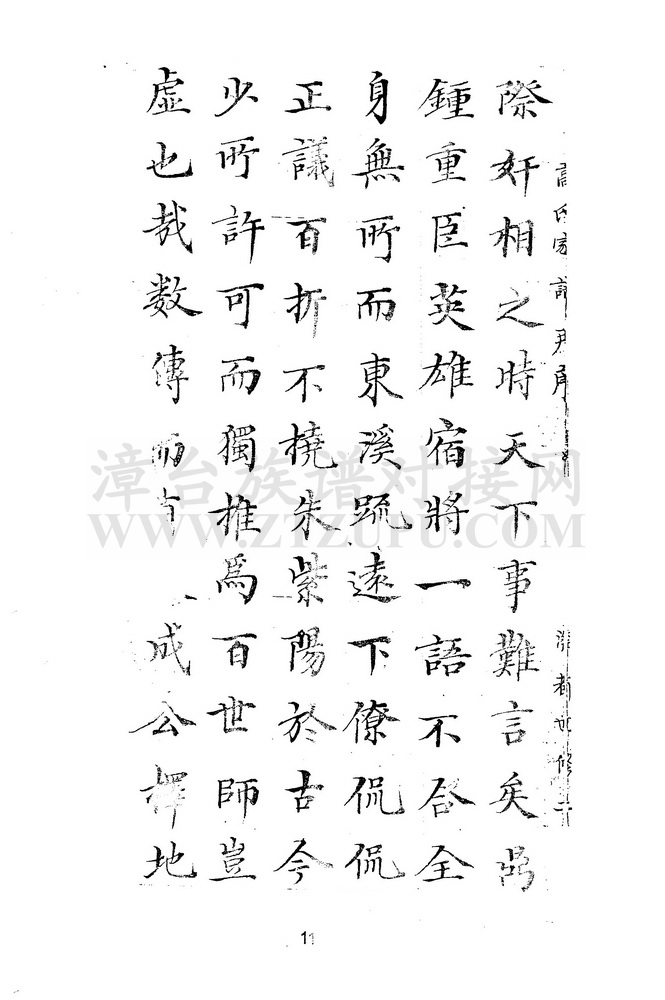 高氏家譜尹序
漳耆世修二
際奸相之時天下事難言矣
鍾重臣英雄宿將一語不合全
身無所而東溪疏遠下僚侃侃
正議百折不橈朱紫陽於古今
少所許可而獨推爲百世師豈
虛也哉数傳而 成公擇地
漳台族谱对接网
WWW.ZTZUPU.COM
11